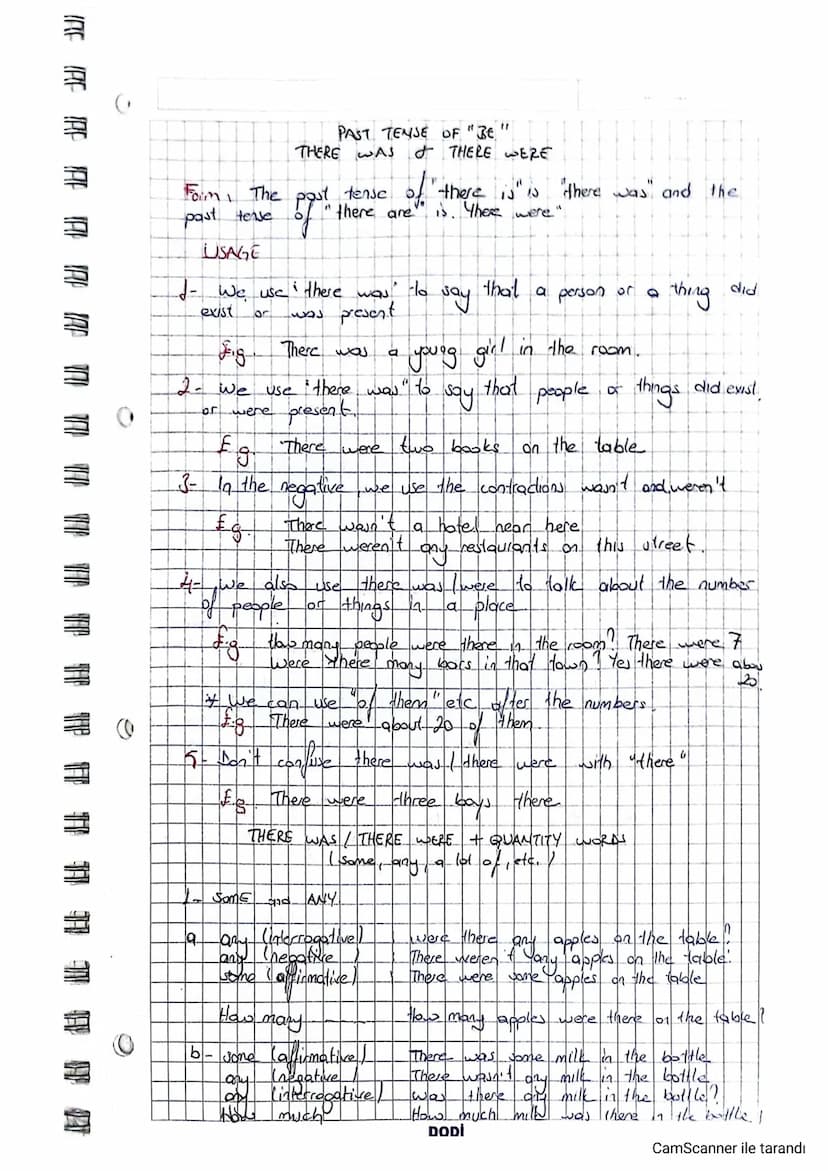 PAST TENSE OF "BE"
THERE WAS & THERE WERE
Form, The past tense of "there is" is "there was" and the
past tense of "there are" is. "there were"
USAGE
1- We use "there was" to say that a person or a thing did
exist or was present
E.g. There was a young girl in the room.
2- We use "there was" to say that people or things did exist.
or were present.
E.g. There were two books on the table
3- In the negative, we use the contractions wasn't and, weren't
E.g. There wasn't a hotel near here
There weren't any restaurants on this street.
4- We also use there was / were to talk about the number
of people or things in a place
E.g How many people were there in the room? There were 7
Were there many cars in that town? Yes there were abou
20
* We can use "of them" etc. after the numbers.
E.g. There were about 20 of them.
5- Don't confuse there was / there were with "there"
E.g. There were three boys there
THERE WAS / THERE WERE + QUANTITY WORDS
(some, any, a lot of, etc.)
1- SOME and ANY
a any (interrogative) Were there any apples on the table?
any (negative) There weren't any apples on the table.
some (affirmative) There were some apples on the table
How many How many apples were there on the table?
b- some (affirmative) There was some milk in the bottle
any (negative) There wasn't any milk in the bottle
any (interrogative) Was there any milk in the bottle?
How much How much milk was there in the bottle?
DODİ
CamScanner ile tarandı